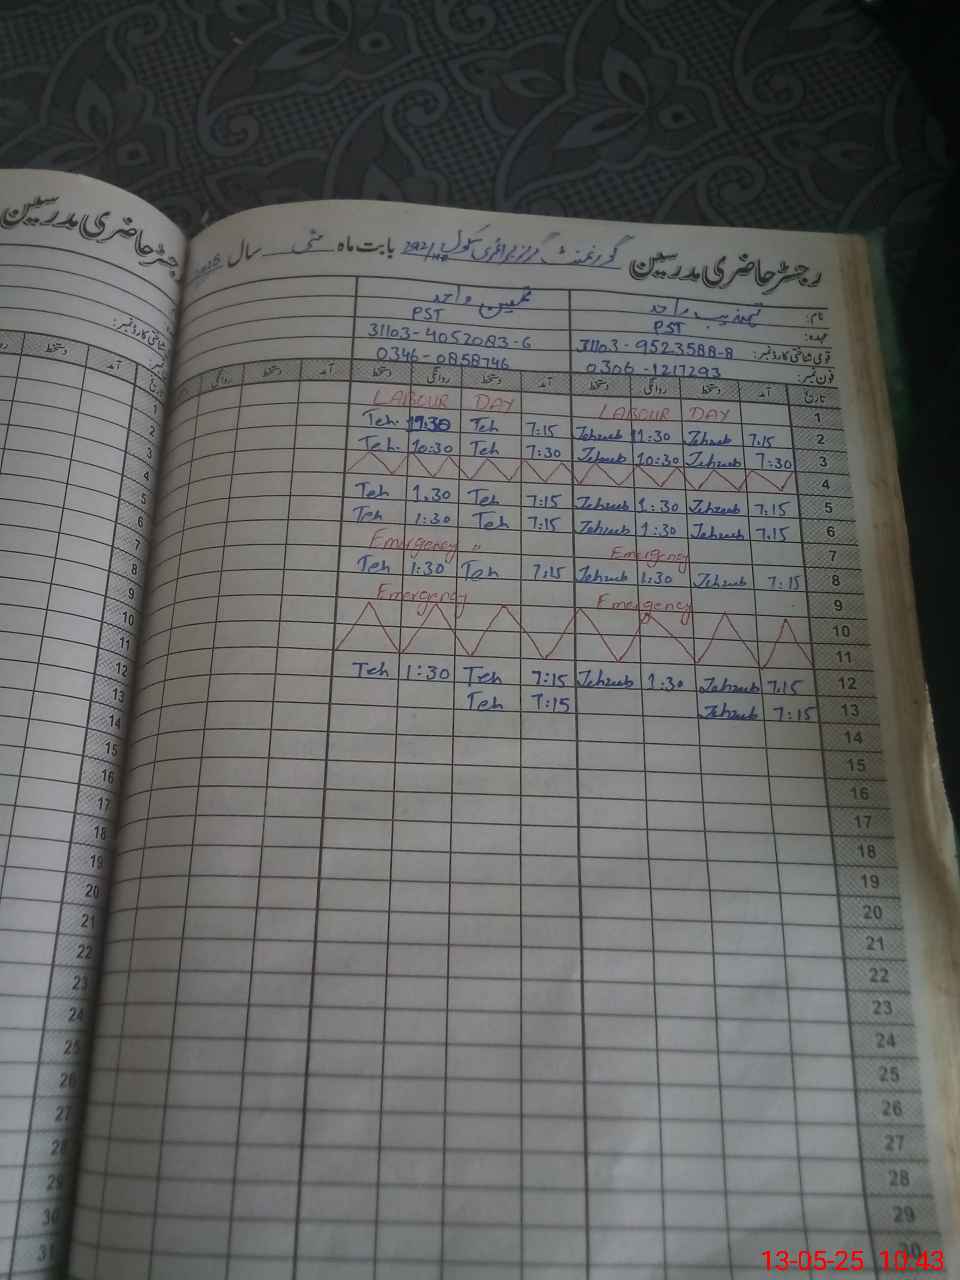 رجسٹر حاضری مدرسین گورنمنٹ گرلز پرائمری سکول بابت ماہ مئی سال
نام: تہذیب واحد
عہدہ: PST PST
قومی شناختی کارڈ نمبر: 31103-9523588-8 31103-4052083-6
فون نمبر: 0306-1217293 0346-0858746
تاریخ آمد دستخط روانگی دستخط آمد دستخط روانگی دستخط آمد دستخط روانگی
LABOUR DAY LABOUR DAY 1
Teh. Teh 7:15 Tehzeeb 11:30 Tehzeeb 7:15 2
Teh. 10:30 Teh 7:30 Tehzeeb 10:30 Tehzeeb 7:30 3
4
Teh 1:30 Teh 7:15 Tehzeeb 1:30 Tehzeeb 7:15 5
Teh 1:30 Teh 7:15 Tehzeeb 1:30 Tehzeeb 7:15 6
Emergency " Emergency 7
Teh 1:30 Teh 7:15 Tehzeeb 1:30 Tehzeeb 7:15 8
Emergency Emergency 9
10
11
Teh 1:30 Teh 7:15 Tehzeeb 1:30 Tehzeeb 7:15 12
Teh 7:15 Tehzeeb 7:15 13
14
15
16
17
18
19
20
21
22
23
24
25
26
27
28
29
30
رجسٹر حاضری مدرسین
شناختی کارڈ نمبر:
آمد دستخط
1
2
3
4
5
6
7
8
9
10
11
12
13
14
15
16
17
18
19
20
21
22
23
24
25
26
27
28
29
30
31
13-05-25 10:43